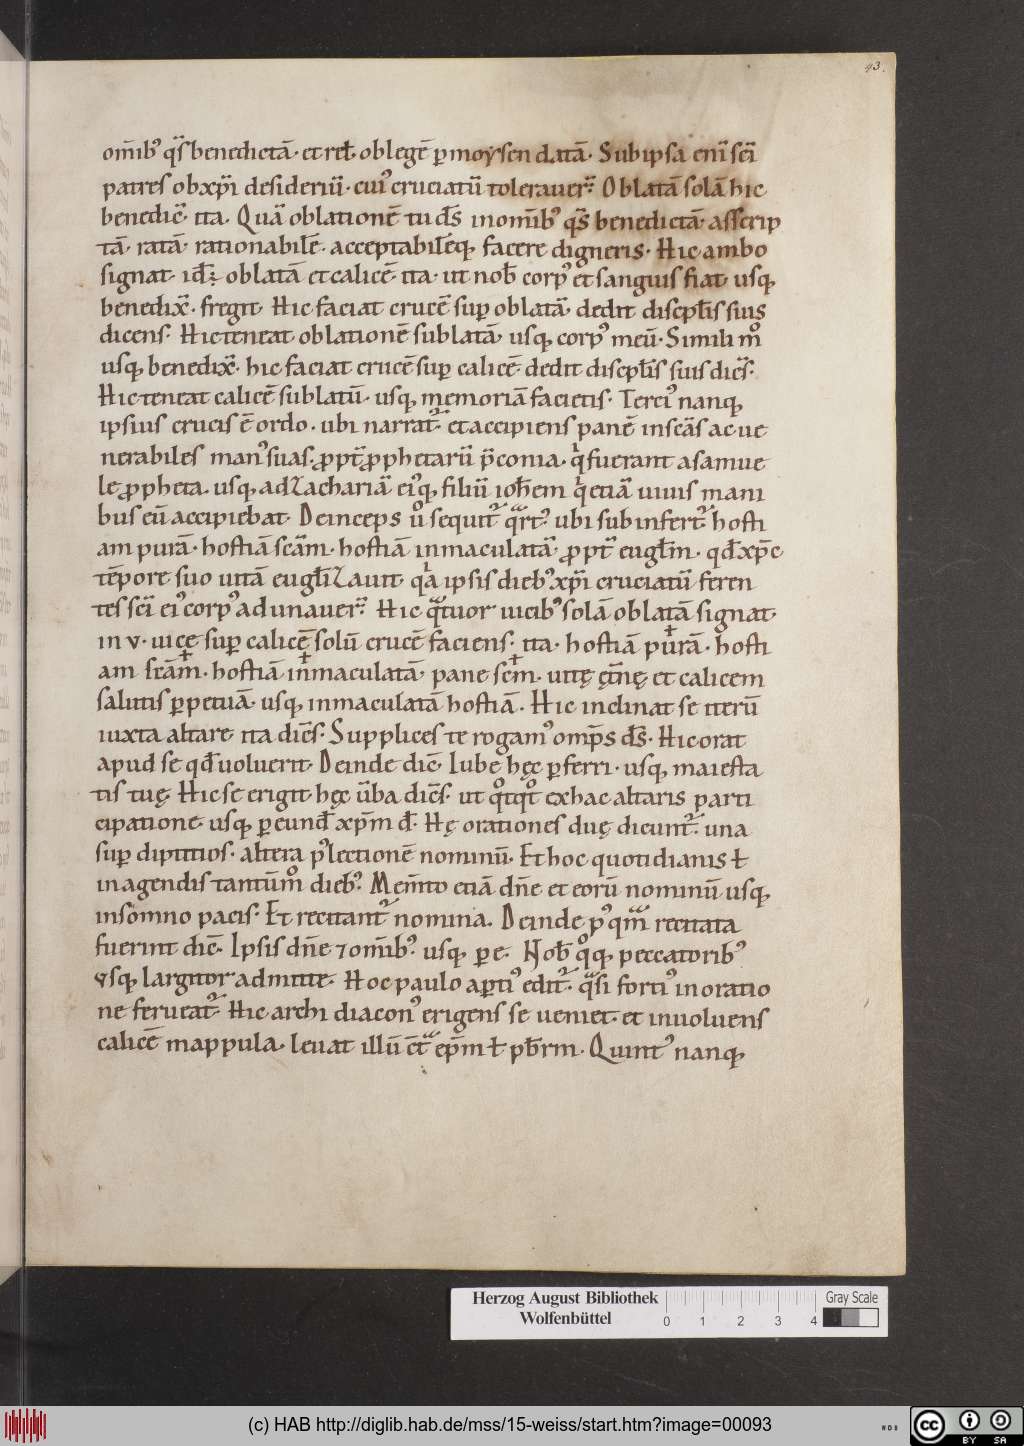 43.
om̄ib᾽ q̄s benedictā· et rel̄· ob legē p̱ moẏsen datā· Sub ipsa eni̅ sc̄i
patres ob xp̄i desideriū· cui᾽ cruciatū tolerauer̄· Oblatā solā hic
benedic̄· ita· Quā oblationē tu d̄s̄ in om̄ib᾽ q̄s benedictā· asscrip
tā· ratā· rationabilē· acceptabilēq; facere digneris· Hic ambo
signat· id̄; oblatā et calicē· ita· ut nob̄ corp᾽ et sanguis fiat· usq;
benedix̄· fregit· Hic faciat crucē sup̱ oblatā· dedit discipl̄is suis
dicens· Hic teneat oblationē sublatā· usq; corp᾽ meū· Simili mͦ
usq; benedix̄· hic faciat crucē sup̱ calicē· dedit discpl̄is suis dic̄s·
Hic teneat calicē sublatū· usq; memoriā facietis· Terci᾽ nanq;
ipsius crucis ē ordo· ubi narrat᷑· et accipiens panē in sc̄as ac ue
nerabiles man᾽ suas· ꝓpt̄ ꝓphetarū p̄conia· qͥ fuerant a samue
le ꝓpheta· usq; ad Zachariā ei᾽q; filiū ioh̄em qͥ etiā uiuis mani
bus eū accipiebat· Deinceps uͦ sequit᷑ qᷓrt᾽ ubi subinfert᷑ hosti
am purā· hostiā sc̄am· hostiā inmaculatā· ꝓpt̄ eugl̄m· qd̄ xp̄c
tēpore suo uitā eugl̄iZauit· qͥa ipsis dieb᾽ xp̄i cruciatū feren
tes sc̄i ei᾽ corp᾽ adunauer̄· Hic qᷓtuor uicib᾽ solā oblatā signat·
in v· uice sup̱ calicē solū crucē faciens· ita· hostiā + purā· hosti
am + sc̄am· hostiā + inmaculatā· pane + sc̄m· uitę ęt̄nę et calicem
salutis p̱petuā· usq; inmaculatā hostiā· Hic inclinat se iterū
iuxta altare ita dic̄s· Supplices te rogam᾽ omp̄s d̄s̄· Hic orat
apud se qd̄ uoluerit· Deinde dic̄· Iube hęc p̱ferri· usq; maiesta
tis tuę· Hic se erigit hęc ūba dic̄s· ut qͦtqͦt ex hac altaris parti
cipatione usq; p̱ eund̄ xp̄m d̄· Hę orationes duę dicunt᷑· una
sup̱ diptitios· altera p᾽ lectionē nominū· Et hoc quotidianis ł
in agendis tantūmͦ dieb᾽· Mem̄to etiā dn̄e et eorū nominū usq;
in somno pacis· Et recitant᷑ nomina· Deinde p᾽ qᷓm recitata
fuerint dic̄· Ipsis dn̄e ⁊ om̄ib᾽· usq; p̱ e· Nob̄ qͦq; peccatorib᾽
vsq; largitor admitte· Hoc paulo ap̱ti᾽ edit᷑· qᷓsi forti᾽ in oratio
ne ferueat᷑· Hic archidiacon᾽ erigens se ueniet· et inuoluens
calicē mappula· leuat illū c̄tᷓ ep̄m ł pb̄rm· Quint᾽ nanq;
Herzog August Bibliothek
Wolfenbüttel
0 1 2 3 4
Gray Scale
(c) HAB http://diglib.hab.de/mss/15-weiss/start.htm?image=00093
cc BY SA